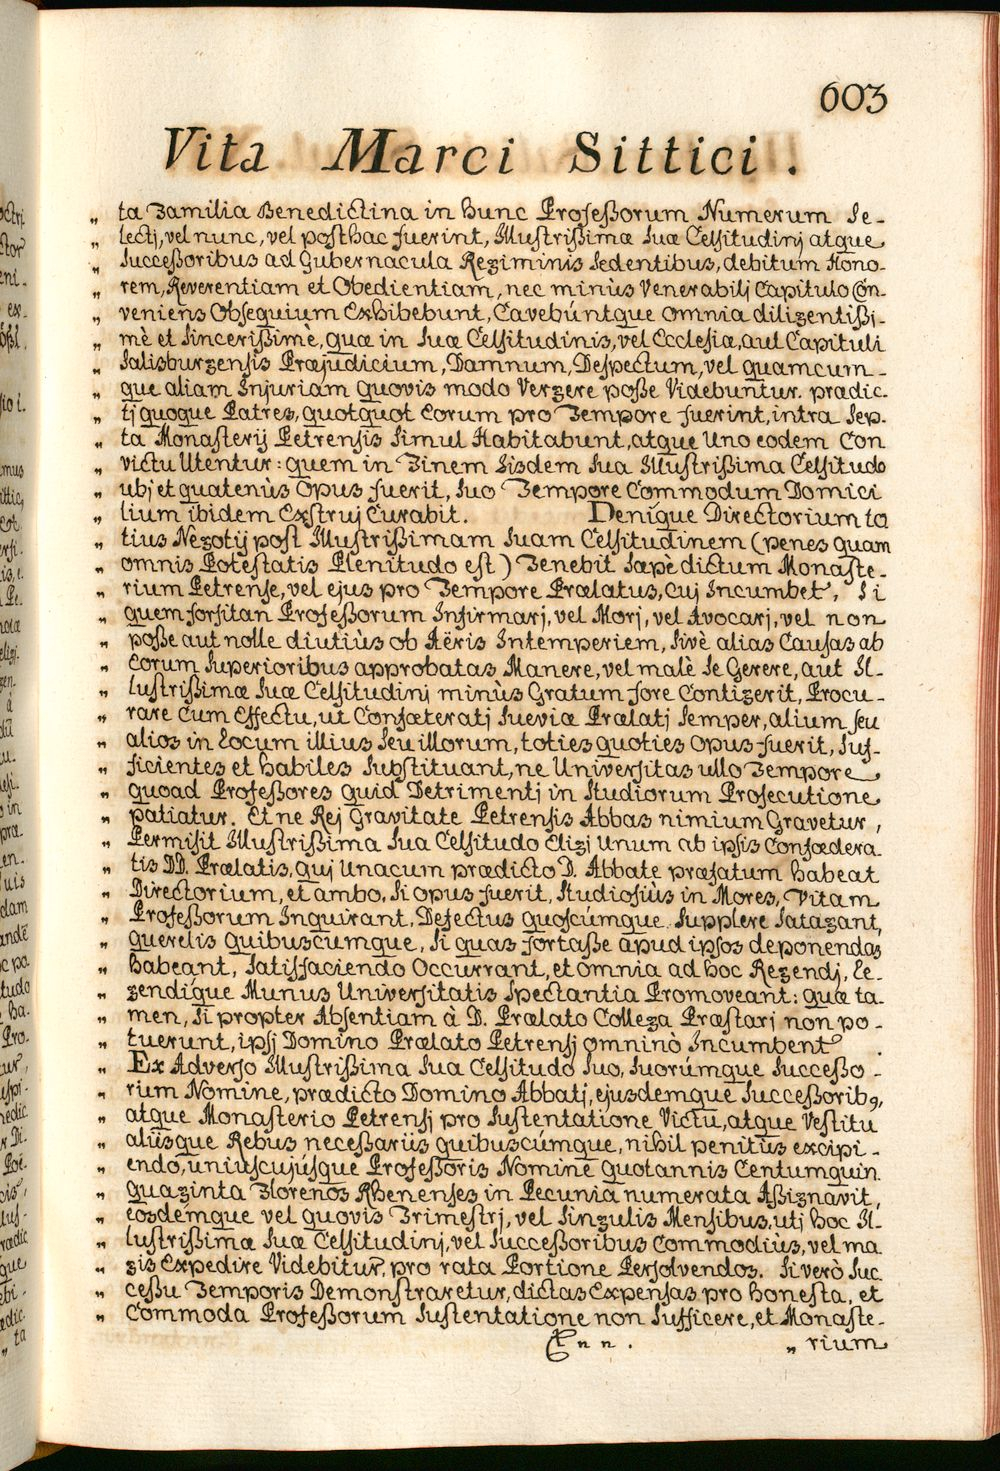 603
Vita Marci Sittici.
„ ta Familia Benedictina in hunc Professorum Numerum Se-
„ lecti, vel nunc, vel posthac fuerint, Illustrissimæ Suæ Celsitudini atque
„ Successoribus ad Gubernacula Regiminis Sedentibus, debitum Hono-
„ rem, Reverentiam et Obedientiam, nec minùs Venerabili Capitulo Con-
„ veniens Obsequium Exhibebunt, Cavebúntque omnia diligentißi-
„ mè et Sincerißimè, quæ in Suæ Celsitudinis, vel Ecclesiæ, aut Capituli
„ Salisburgensis Præjudicium, Damnum, Despectum, vel quamcum-
„ que aliam Injuriam quovis modo Vergere poße Videbuntur. prædic-
„ ti quoque Patres, quotquot Eorum pro Tempore fuerint, intra Sep-
„ ta Monasterij Petrensis Simul Habitabunt, atque Uno eodem Con
„ victu Utentur: quem in Finem Iisdem Sua Illustrißima Celsitudo
„ ubi et quatenùs Opus fuerit, Suo Tempore Commodum Domici
„ lium ibidem Exstrui Curabit. Denique Directorium to
„ tius Negotij post Illustrißimam Suam Celsitudinem (penes quam
„ omnis Potestatis Plenitudo est) Tenebit Sæpè dictum Monaste-
„ rium Petrense, vel ejus pro Tempore Prælatus, Cui Incumbet, Si
„ quem forsitan Profeßorum Infirmari, vel Mori, vel Avocari, vel non
„ poße aut nolle diutiùs ob Aëris Intemperiem, Sivè alias Causas ab
„ Eorum Superioribus approbatas Manere, vel malè Se Gerere, aut Il-
„ lustrißimæ Suæ Celsitudini minùs Gratum fore Contigerit, Procu-
„ rare Cum Effectu, ut Confœterati Sueviæ Prælati Semper, alium seu
„ alios in Locum illius Seu illorum, toties quoties Opus fuerit, Suf-
„ ficientes et habiles Substituant, ne Universitas ullo Tempore
„ quoad Profeßores quid Detrimenti in Studiorum Prosecutione
„ patiatur. Et ne Rei Gravitate Petrensis Abbas nimium Gravetur,
„ Permisit Illustrißima Sua Celsitudo Eligi Unum ab ipsis Confœdera-
„ tis DD. Prælatis, qui Unacum prædicto D. Abbate præfatum habeat
„ Directorium, et ambo, Si opus fuerit, Studiosiùs in Mores, Vitam
„ Profeßorum Inquirant, Defectus quoscúmque Supplere Satagant,
„ querelis quibuscumque, Si quas fortaße apud ipsos deponendas
„ habeant, Satisfaciendo Occurrant, et omnia ad hoc Regendi, Le-
„ gendíque Munus Universitatis Spectantia Promoveant: quæ ta-
„ men, Si propter Absentiam à D. Prælato Collega Præstari non po-
„ tuerunt, ipsi Domino Prælato Petrensi omninò Incumbent.
„ Ex Adverso Illustrißima Sua Celsitudo Suo, Suorúmque Succeßo-
„ rium Nomine, prædicto Domino Abbati, ejusdemque Succeßoribꝫ,
„ atque Monasterio Petrensi pro Sustentatione Victu, atque Vestitu
„ aliisque Rebus necessariis quibuscúmque, nihil penitùs excipi-
„ endo, uniuscujúsque Profeßoris Nomine quotannis Centumquin
„ quaginta Florenos Rhenenses in Pecunia numerata Aßignavit,
„ eosdemque vel quovis Trimestri, vel Singulis Mensibus, uti hoc Il-
„ lustrißimæ Suæ Celsitudini, vel Succeßoribus Commodiùs, vel ma
„ gis Expedire Videbitur, pro rata Portione Persolvendos. Si verò Suc
„ ceßu Temporis Demonstraretur, dictas Expensas pro honesta, et
„ Commoda Profeßorum Sustentatione non Sufficere, et Monaste-
nn. „ rium